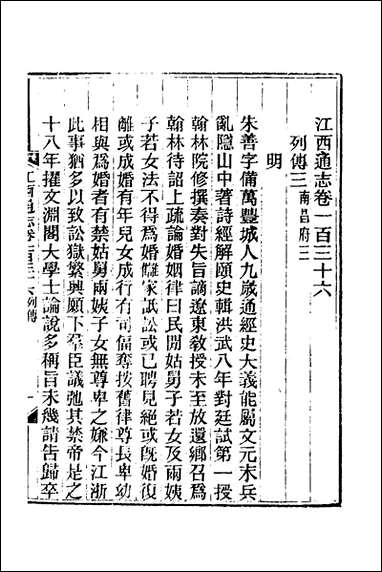 江西通志卷一百三十六
列傳三南昌府三
明
朱善字備萬豐城人九歲通經史大義能屬文元末兵
亂隱山中著詩經解頤史輯洪武八年對廷試第一授
翰林院修撰奏對失旨謫遼東敎授未至放還鄉召爲
翰林待詔上疏論婚姻律曰民閒姑舅子若女及兩姨
子若女法不得爲婚讎家詆訟或已聘見絕或旣婚復
離或成婚有年兒女成行有司偪奪按舊律尊長卑幼
相與爲婚者有禁姑舅兩姨子女無尊卑之嫌今江浙
此事猶多以致訟獄繁興願下羣臣議弛其禁帝是之
十八年擢文淵閣大學士論說多稱旨未幾請告歸卒
江西通志卷一百三十六列傳